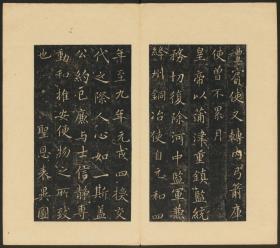 豊實使又轉内弓箭庫
使曽不累月
皇帝以蒲津重鎮監統
務切復除河中監軍兼
絳州銅冶使自元和四
年至九年元戎四換交
代之際人心如一斯蓋
公約己廉与士信静專
動和推安便物之所致
也　聖恩表異圖